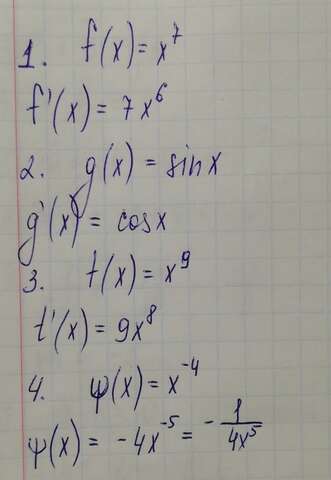 1. f(x) = x⁷
f'(x) = 7x⁶
2. g(x) = sin x
g'(x) = cos x
3. t(x) = x⁹
t'(x) = 9x⁸
4. ψ(x) = x⁻⁴
ψ(x) = -4x⁻⁵ = - 1/4x⁵